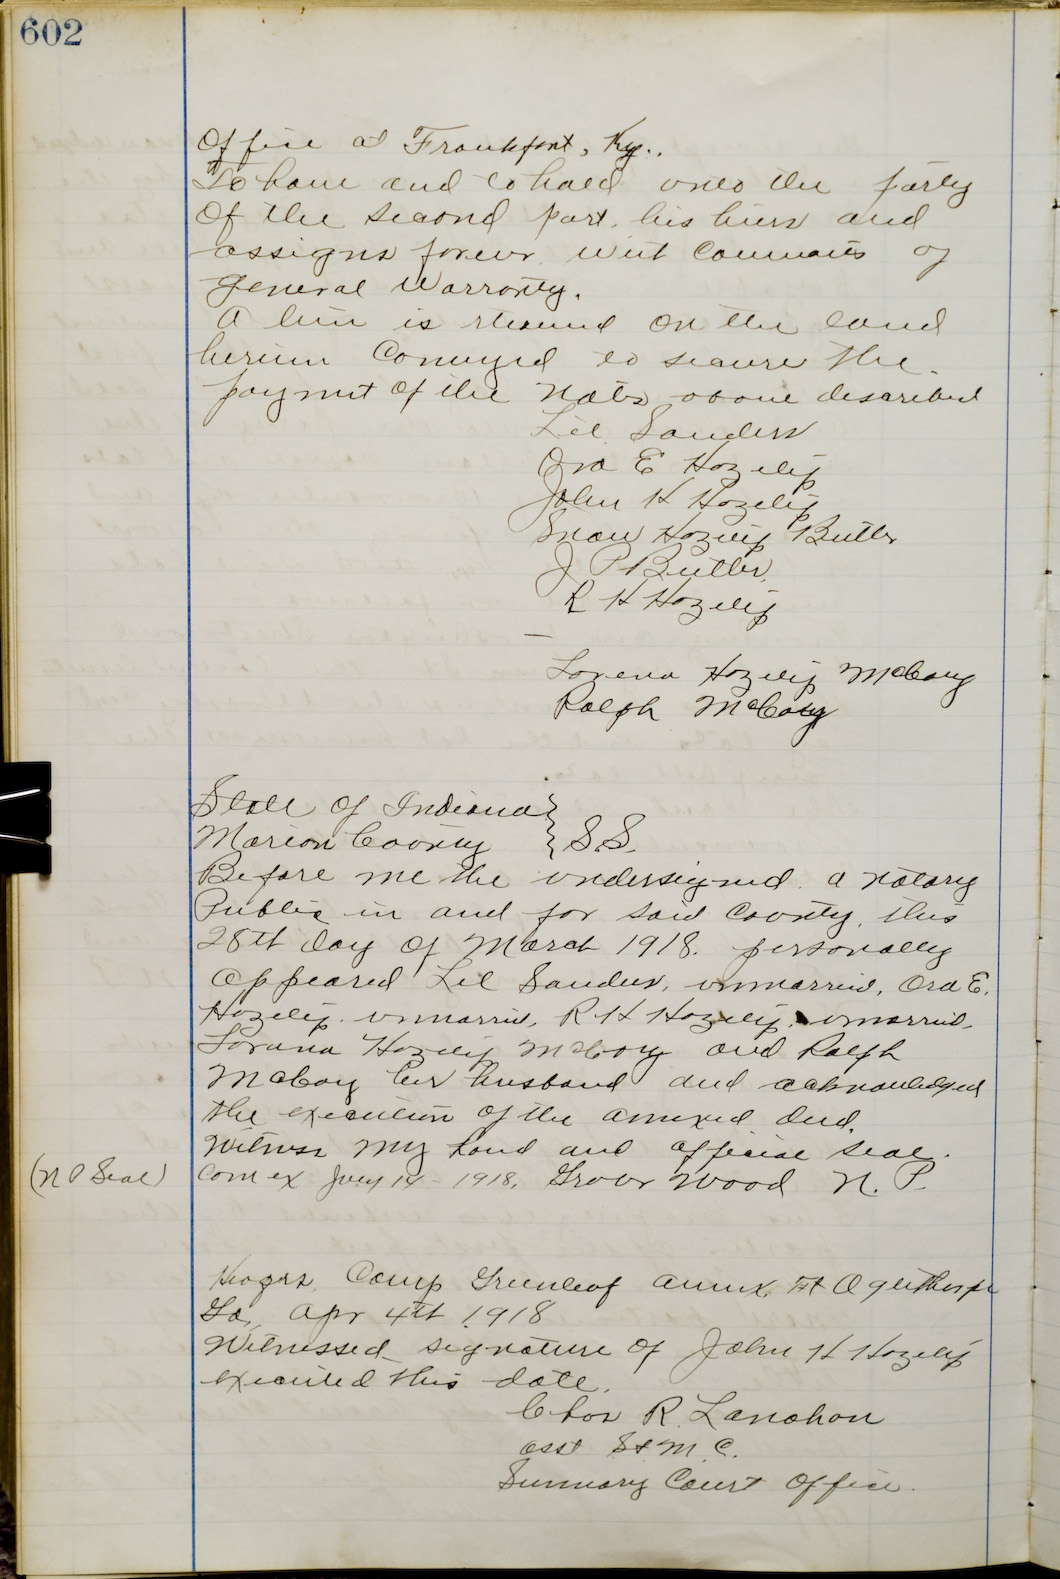 602
Office at Frankfort, Ky.
To have and to hold unto the party
Of the second part, his heirs and
assigns forever with Covenants of
General Warranty.
A lien is retained on the land
herein Conveyed to secure the
payment of the notes above described
Lil Sanders
Ora E Hazelip
John H Hazelip
Snow Hazelip Butler
J P Butler
R H Hazelip
Lorena Hazelip McCoy
Ralph McCoy
State of Indiana }
Marion County } S.S.
Before me the undersigned a notary
Public in and for said County, this
28th day of March 1918. personally
appeared Lil Sanders, unmarried, Ora E.
Hazelip unmarried, R H Hazelip, unmarried,
Lorena Hazelip McCoy and Ralph
McCoy her husband and acknowledged
the execution of the annexed deed.
Witness my hand and official seal.
(N P Seal) Com ex July 14 - 1918. Grover Wood N. P.
Hdqrs. Camp Greenleaf annex, Ft Oglethorpe
Ga, Apr 4th 1918
Witnessed signature of John H Hazelip
executed this date.
Chas R. Lanahan
asst St M. C.
Summary Court Office.